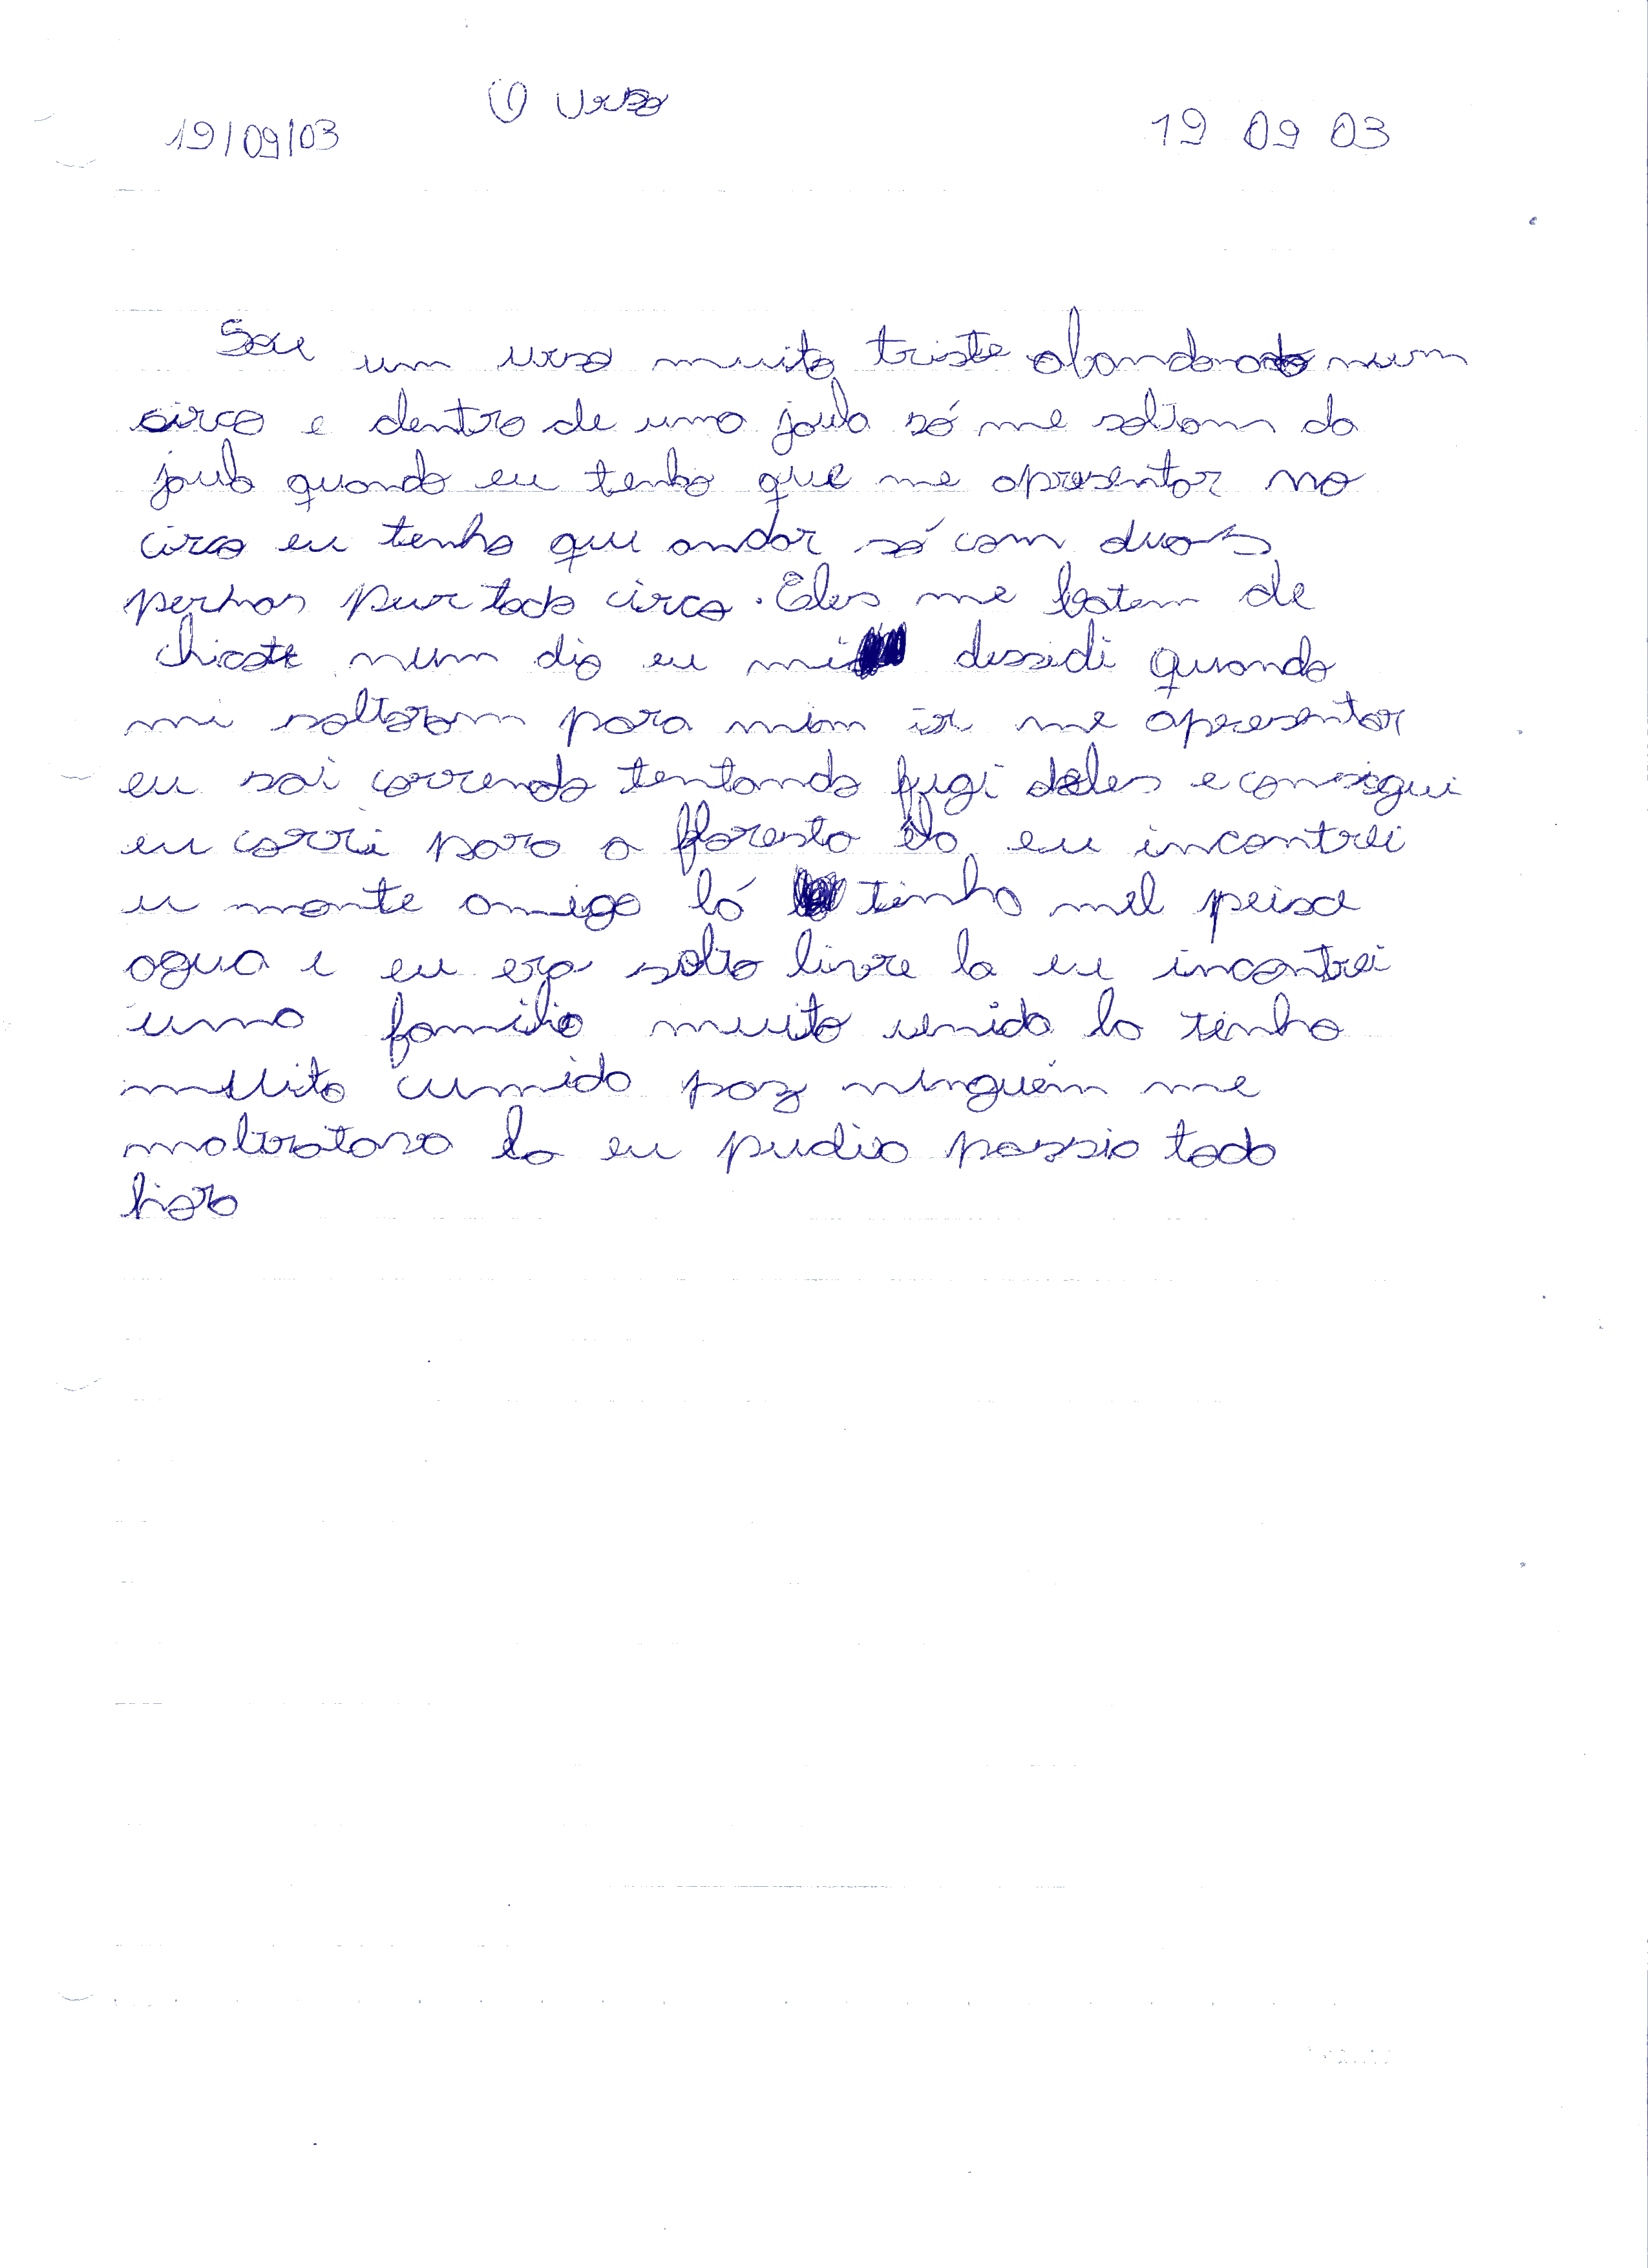 O urso
19/09/03 19 09 03
Sou um urso muito triste abandonado num
circo e dentro de uma jaula só me soltam da
jaula quando eu tenho que me apresentar no
circo eu tenho que andar só com duas
pernas pur todo circo. Eles me batem de
chicote num dia eu mi dessidi quando
mi soltaram para mim ir me apresentar
eu sai correndo tentando fugi deles e consigui
eu corri para a floresta la eu incontrei
u monte amigo lá tinha mel peixe
agua e eu era solto livre la eu incontrei
uma familia muito unida la tinha
muita cumida paz ninguém me
maltratava la eu pudia passia todo